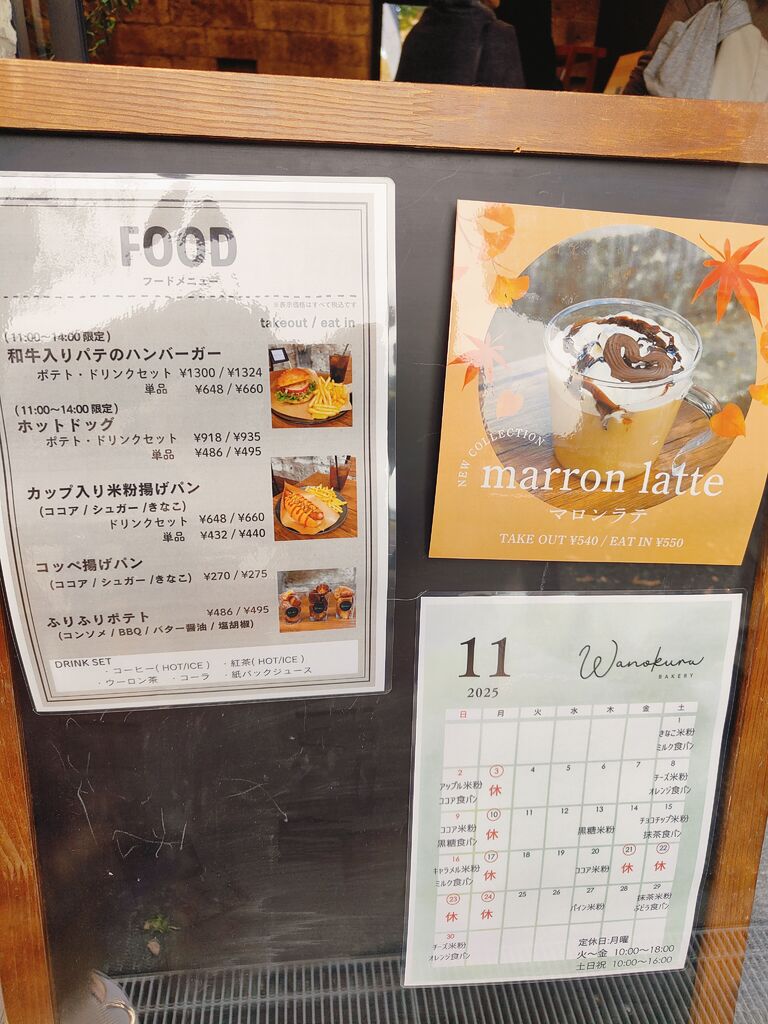 FOOD
フードメニュー
※表示価格はすべて税込です
takeout / eat in
(11:00〜14:00 限定)
和牛入りパテのハンバーガー
ポテト・ドリンクセット ¥1300 / ¥1324
単品 ¥648 / ¥660
(11:00〜14:00 限定)
ホットドッグ
ポテト・ドリンクセット ¥918 / ¥935
単品 ¥486 / ¥495
カップ入り米粉揚げパン
(ココア / シュガー /きなこ)
ドリンクセット ¥648 / ¥660
単品 ¥432 / ¥440
コッペ揚げパン
(ココア / シュガー /きなこ) ¥270 / ¥275
ふりふりポテト ¥486 / ¥495
(コンソメ / BBQ / バター醤油 / 塩胡椒)
DRINK SET
・コーヒー( HOT/ICE ) ・紅茶( HOT/ICE )
・ウーロン茶 ・コーラ ・紙パックジュース
NEW COLLECTION
marron latte
マロンラテ
TAKE OUT ¥540 / EAT IN ¥550
11
2025
Wanokura
BAKERY
日 月 火 水 木 金 土
1
きなこ米粉
ミルク食パン
2 3 4 5 6 7 8
アップル米粉 休 チーズ米粉
ココア食パン オレンジ食パン
9 10 11 12 13 14 15
ココア米粉 休 黒糖米粉 チョコチップ米粉
黒糖食パン 抹茶食パン
16 17 18 19 20 21 22
キャラメル米粉 休 ココア米粉 休 休
ミルク食パン
23 24 25 26 27 28 29
休 休 パイン米粉 抹茶米粉
ぶどう食パン
30
チーズ米粉
オレンジ食パン
定休日:月曜
火〜金 10:00〜18:00
土日祝 10:00〜16:00